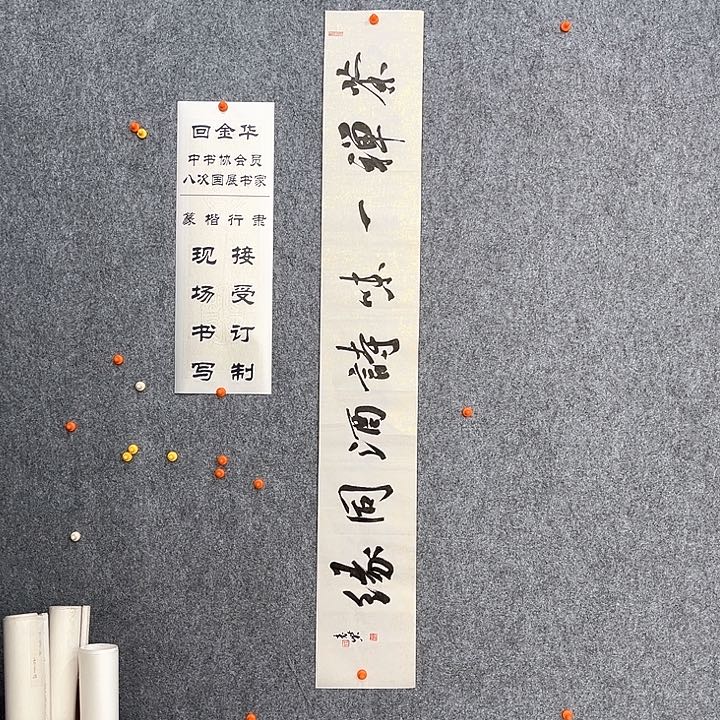 回金华
中书协会员
八次国展书家
篆楷行隶
现场书写
接受订制
茶禪一味詩酒同緣